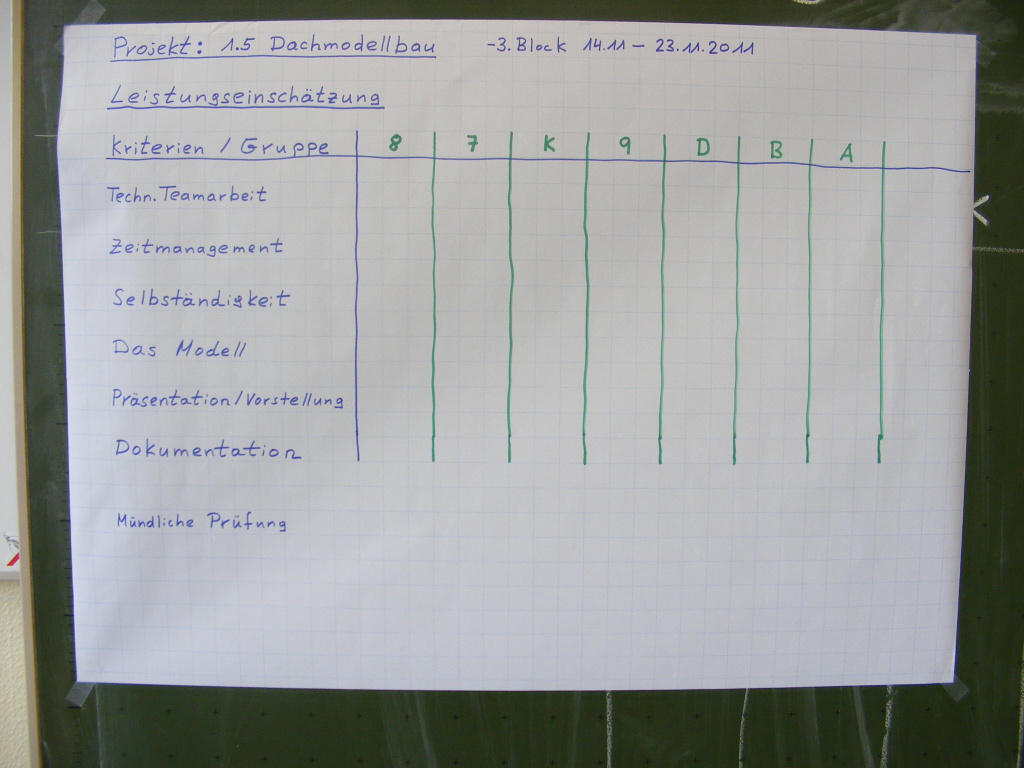 Projekt: 1.5 Dachmodellbau -3. Block 14.11 - 23.11.2011
Leistungseinschätzung
Kriterien / Gruppe 8 7 K 9 D B A
Techn. Teamarbeit
Zeitmanagement
Selbständigkeit
Das Modell
Präsentation/Vorstellung
Dokumentation
Mündliche Prüfung